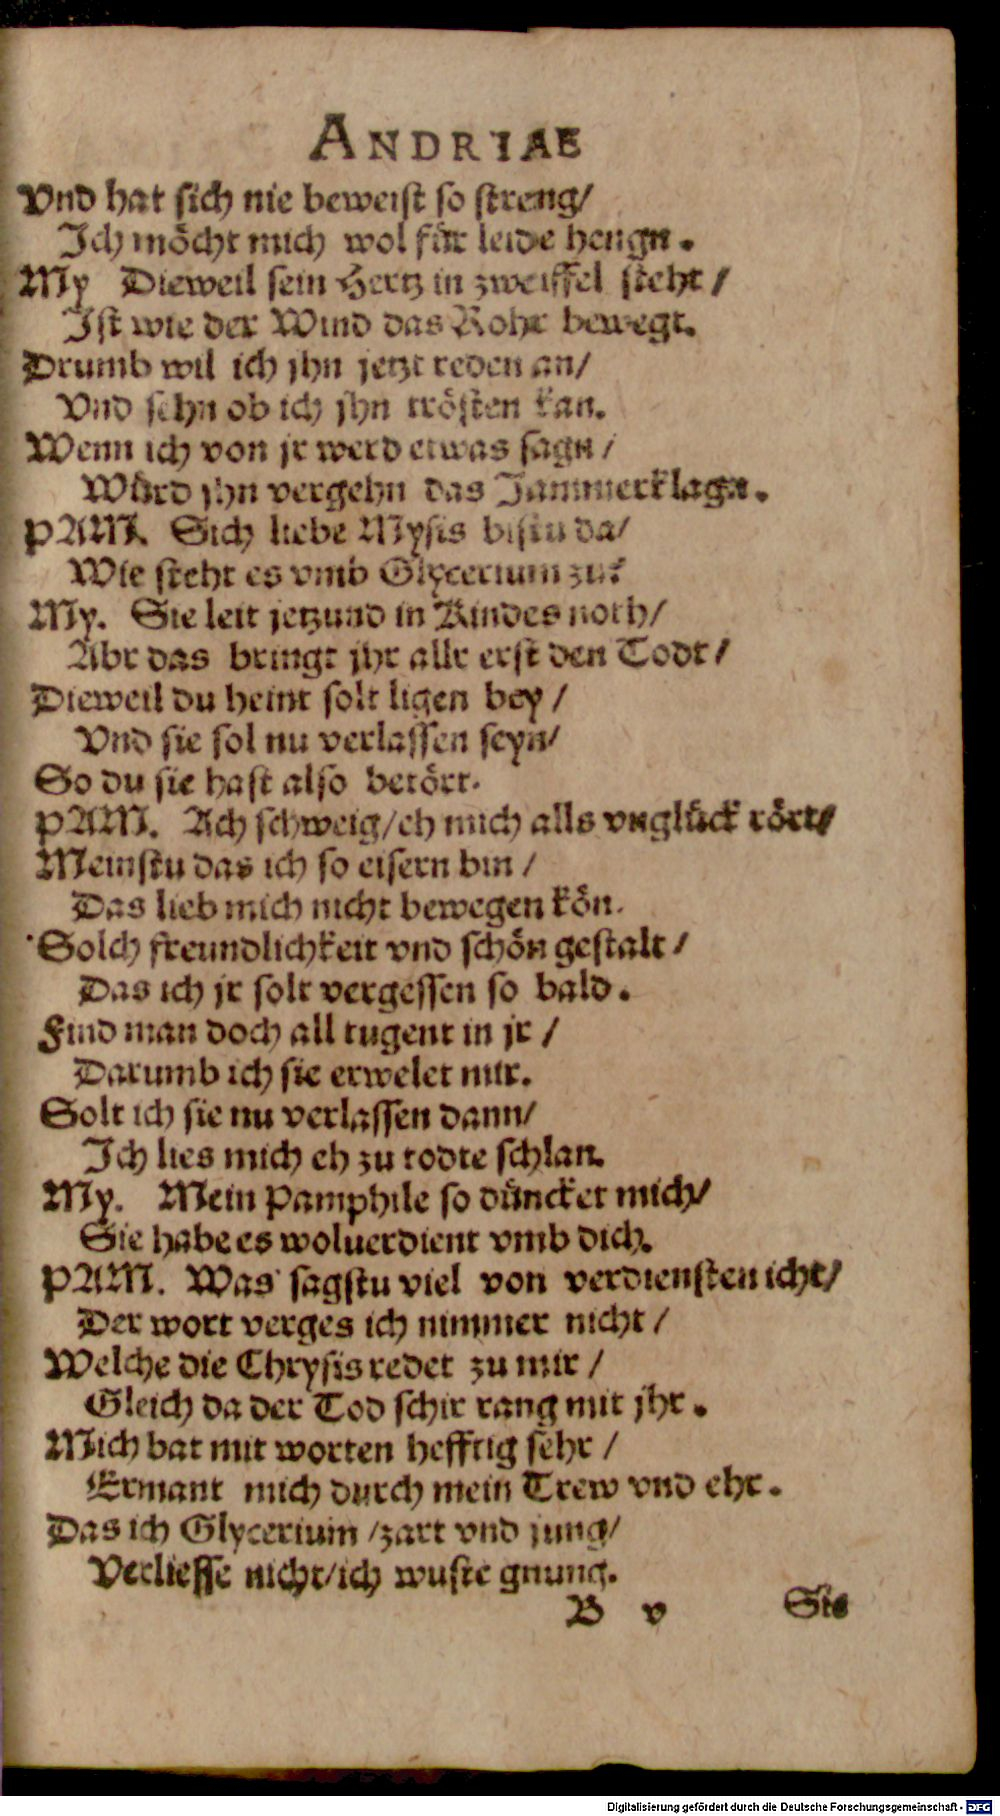 ANDRIAE
Vnd hat sich nie beweist so streng/
Ich möcht mich wol für leide hengn.
My Dieweil sein Hertz in zweiffel steht/
Ist wie der Wind das Rohr bewegt.
Drumb wil ich jhn jetzt reden an/
Vnd sehn ob ich jhn trösten kan.
Wenn ich von jr werd etwas sagn/
Würd jhn vergehn das Jammerklagn.
PAM. Sich liebe Mysis bistu da/
Wie steht es vmb Glycerium zu?
My. Sie leit jetzund in Kindes noth/
Abr das bringt jhr allr erst den Todt/
Dieweil du heint solt ligen bey/
Vnd sie sol nu verlassen seyn/
So du sie hast also betört.
PAM. Ach schweig/eh mich alls vnglück rört/
Meinstu das ich so eisern bin/
Das lieb mich nicht bewegen kön.
Solch freundlichkeit vnd schön gestalt/
Das ich jr solt vergessen so bald.
Find man doch all tugent in jr/
Darumb ich sie erwelet mir.
Solt ich sie nu verlassen dann/
Ich lies mich eh zu todte schlan.
My. Mein Pamphile so düncket mich/
Sie habe es woluerdient vmb dich.
PAM. Was sagstu viel von verdiensten icht/
Der wort verges ich nimmer nicht/
Welche die Chrysis redet zu mir/
Gleich da der Tod schir rang mit jhr.
Mich bat mit worten hefftig sehr/
Ermant mich durch mein Trew vnd ehr.
Das ich Glycerium/zart vnd jung/
Verliesse nicht/ich wuste gnung.
B v Sie
Digitalisierung gefördert durch die Deutsche Forschungsgemeinschaft - DFG